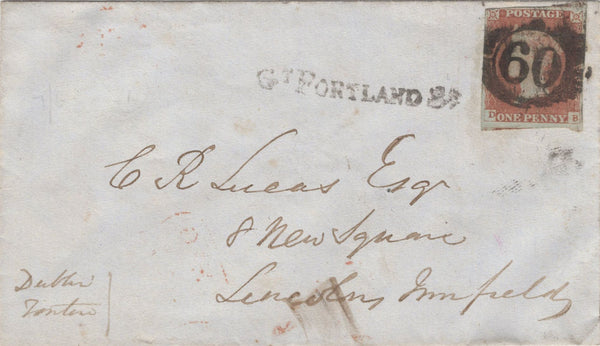 POSTAGE
60
ONE PENNY B
GT PORTLAND ST
C R Lucas Esqr
8 New Square
Lincolns Inn fields
Dublin